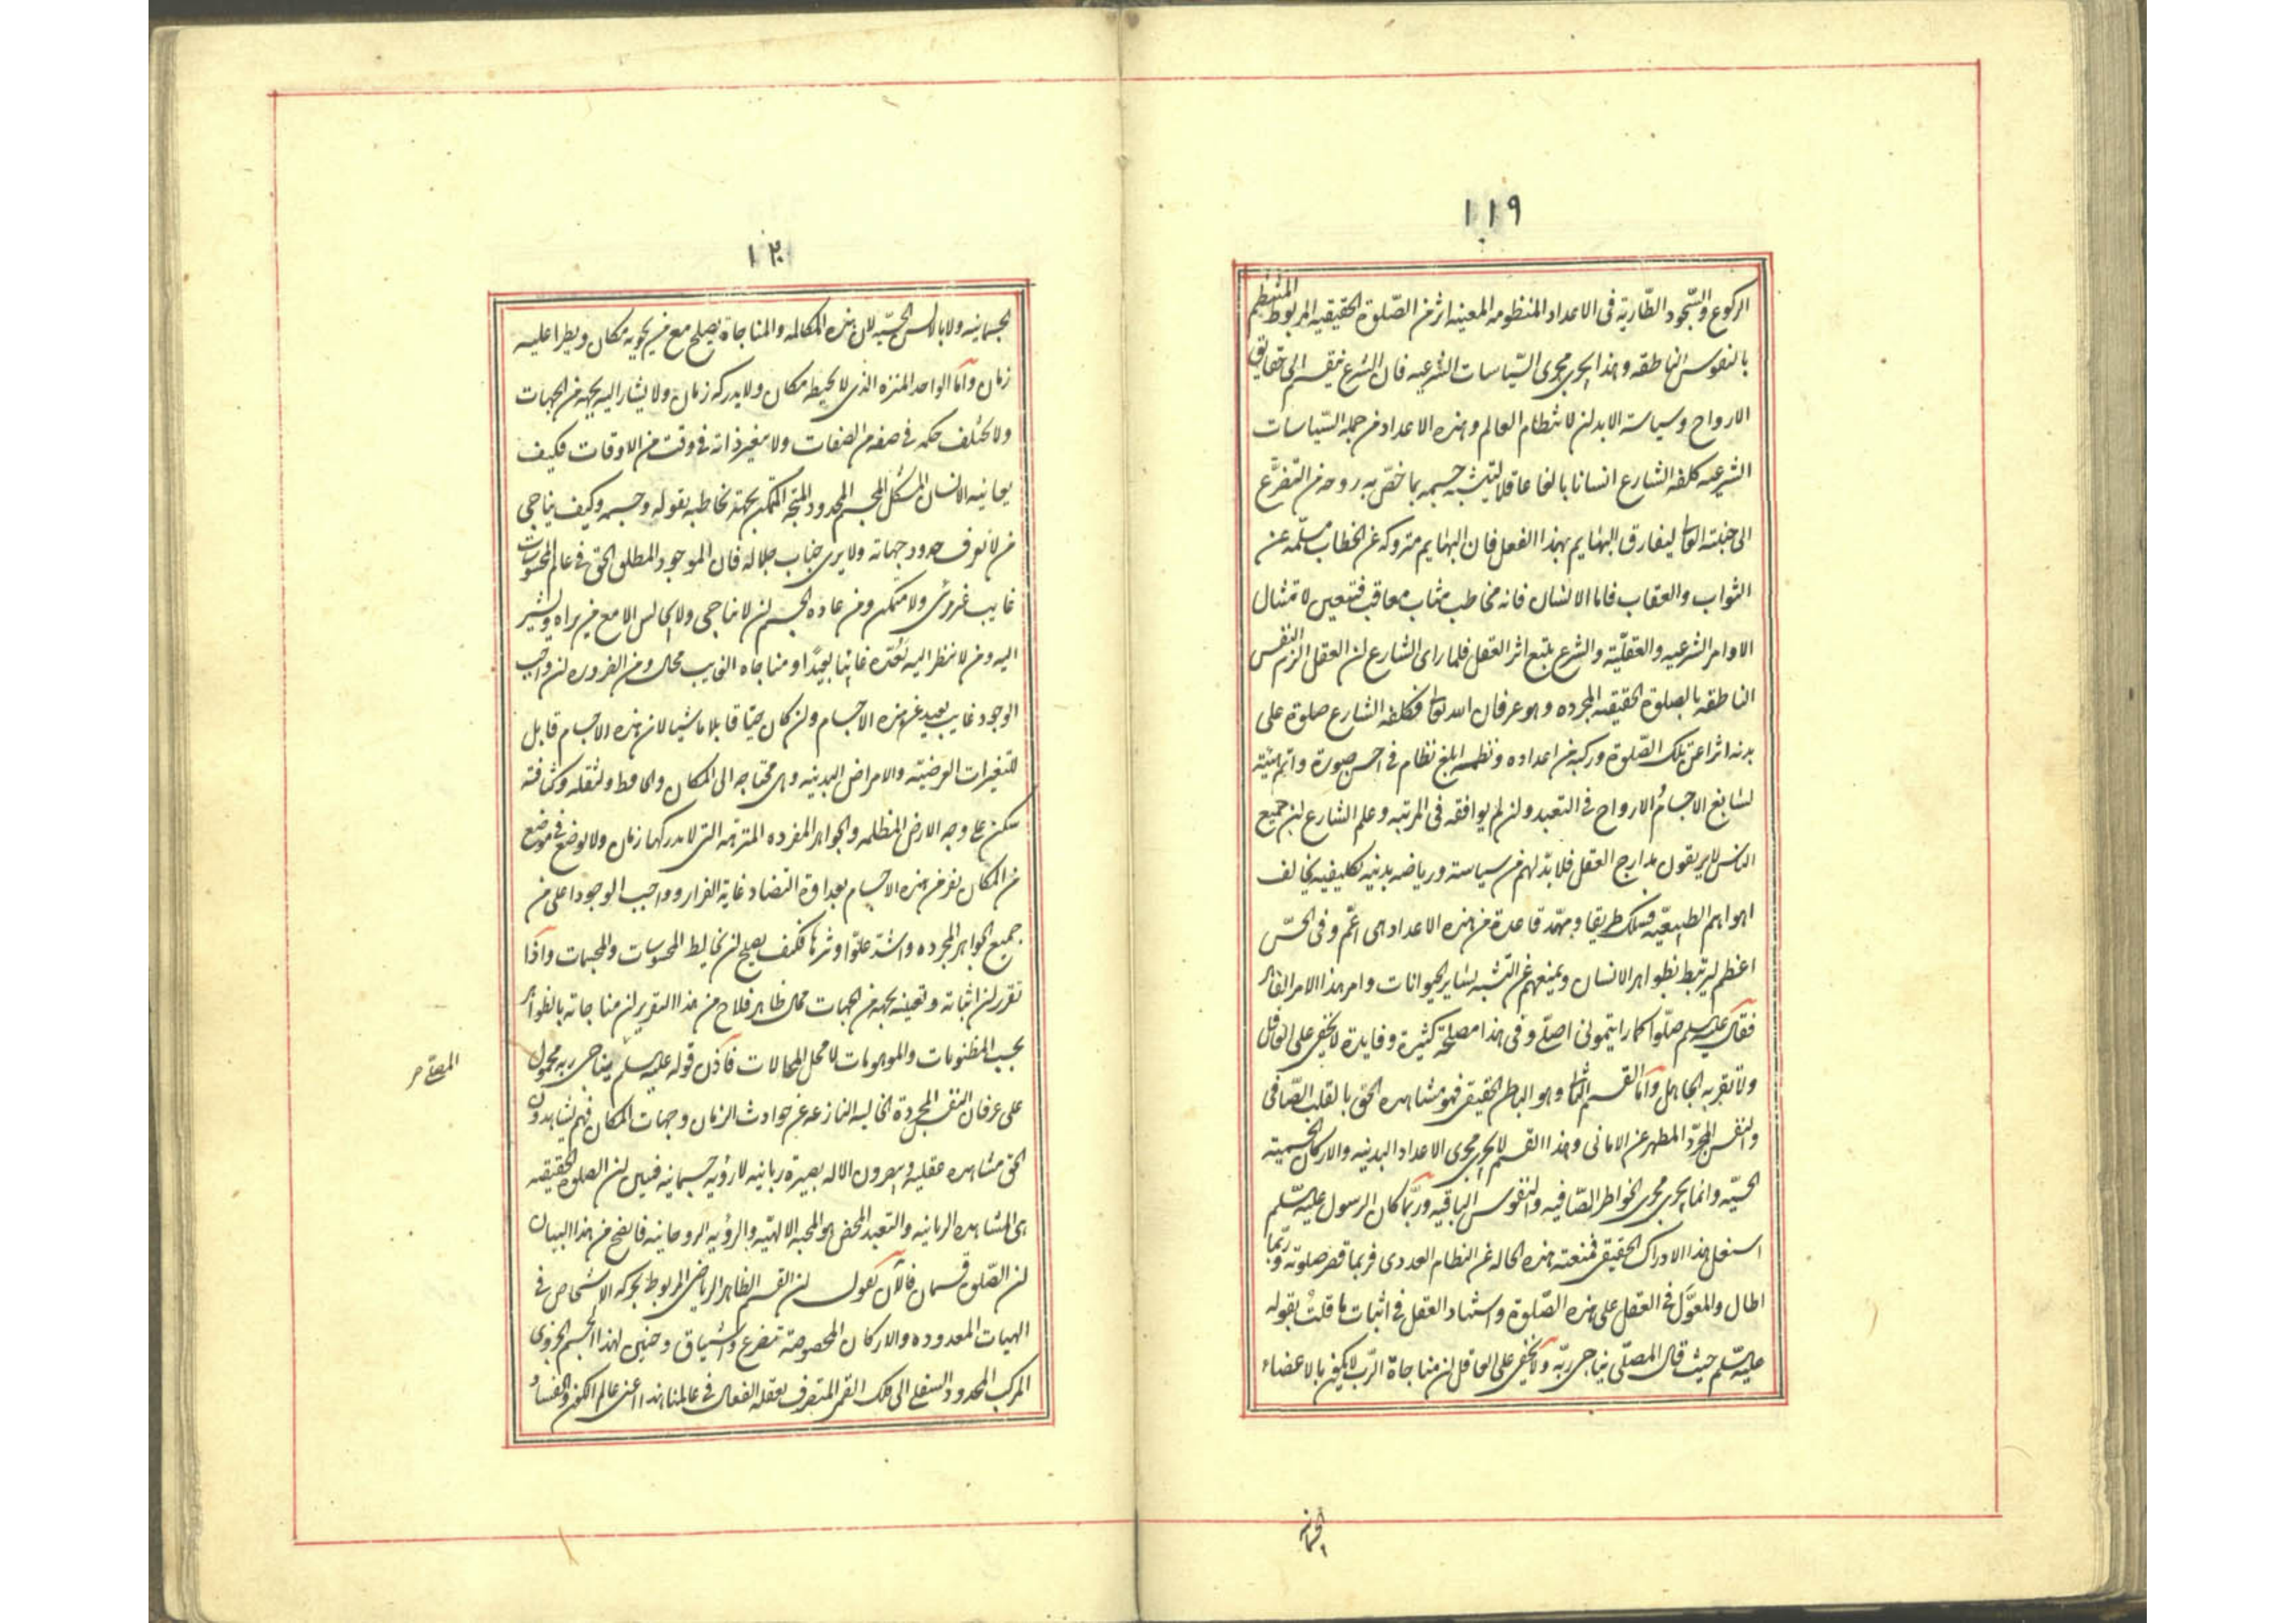 ١١٩
الركوع والسّجود الطّارية فى الاعداد المنظومه المعينه اثر من الصّلوة الحقيقيه المربوط المنتظم
بالنفوس الناطقه وهذا يجرى مجرى السّياسات الشرعيه فان الشرع يقسم الى حقايق
الارواح وسياسة الابدان لانتظام العالم وهذه الاعداد من جمله السّياسات
الشرعيه كلفه الشارع انسانا بالغا عاقلا ليتشبه جسمه بما خصّ به روحه من التضرّع
الى جنبته العا ليفارق البهايم بهذا الفعل فان البهايم متروكه عن الخطاب مسلّمه عن
الثواب والعقاب فاما الانسان فانه مخاطب مثاب معاقب فتعين لامتثال
الاوامر الشرعيه والعقليّة والشرع يتبع اثر العقل فلما راى الشارع ان العقل الزم النفس
الناطقه بالصلوة الحقيقيه المجرده وهو عرفان الله تعا فكلفه الشارع صلوة على
بدنه اثرا عن تلك الصّلوة وركبه من اعداده ونظمه ابلغ نظام فى احسن صورة واتم هيئة
لتتابع الاجسامُ الارواح فى التعبد وان لم يوافقه فى المرتبه وعلم الشارع ان جميع
الناس لا يرتقون مدارج العقل فلا بدّ لهم من سياسة ورياضه بدنيه تكليفيه يخالف
اهواهم الطبيعيّه فسلك طريقا ومهّد قاعدة من هذه الاعداد هى اعمّ وفى الحسّ
اعظم ليرتبط بظواهر الانسان ويمنعهم عن التّشبه بساير الحيوانات وامر بهذا الامر الظاهر
فقال عليه السلم صلّوا كما رايتمونى اصلّى وفى هذا مصلحة كثيرة وفايدة لا يخفى على العاقل
ولا تقربه الجاهل وامّا القسم الثا وهو الباطن الحقيقى فهو مشاهدة الحق بالقلب الصّافى
والنفس المجرّد المطهر عن الامانى وهذا القسم لا يجرى مجرى الاعداد البدنيه والاركان الحسميّة
الحسيّه وانما يجرى مجرى الخواطر الصّافيه والنفوس الباقيه وربّما كان الرسول عليه السّلم
اشتغل بهذا الادراك الحقيقى فمنعته هذه الحاله عن النظام العددى فربما قصر صلوته وربّما
اطال والمعوّل فى العقل على هذه الصّلوة واستشهد العقل فى اثبات ما قلت بقوله
عليه السّلم حيث قال المصلّى يناجى ربّه ولا يخفى على العاقل ان مناجاة الرّب لا يكون بالاعضاء
الجسمانيه
١٢٠
الجسمانيه ولا بالالسن الحسّيه لان هذه المكالمه والمناجاة يصلح مع من يحويه مكان ويطرا عليه
زمان وامّا الواحد المنزه الذى لا يحيطه مكان ولا يدركه زمان ولا يشار اليه بجهة من الجهات
ولا يختلف حكمه فى صفه من الصفات ولا يتغير ذاته فى وقت من الاوقات فكيف
يعاينه الانسان المشكل المجسم المحدود المتجه المتمكن بجهته يخاطبه بقوله وجسمه وكيف يناجى
من لا تعرف حدود جهاته ولا يرى جناب جلاله فان الموجود المطلق الحق فى عالم المحسوسات
غايب غير مرئى ولا متمكن ومن عادة الجسم ان لا يناجى ولا يجالس الا مع من يراه ويشير
اليه ومن لا ينظر اليه يَعُدّه غايبا بعيداً ومناجاه الغايب محال ومن الضروره ان واجب
الوجود غايب بعيد عن هذه الاجسام وان كان حيّا قابلا ماشيا لان هذه الاجسام قابل
للتغيرات العرضيّه والامراض البدنيه وهى محتاجه الى المكان والحافظ ولثقله وكثافته
يسكن على وجه الارض المظلمه والجواهر المفرده المنزهه التى لا يدركها زمان ولا يوضع فى موضع
من المكان يفر من هذه الاجسام بعداوة التضاد غاية الفرار وواجب الوجود اعلى من
جميع الجواهر المجرده واشدّ علوّا وتنزها فكيف يصلح ان يخالط المحسوسات والمجسمات واذا
تقرر ان اثباته وتعيينه بجهة من الجهات محال ظاهر فلاح من هذا التقرير ان مناجاته بالظواهر
بحسب المظنونات والموهومات لا محل المحالات فاذن قوله عليه السلم يناجى ربه محمول
على عرفان النفس المجردة الخاليه النازعه عن حوادث الزمان وجهات المكان فهم يشاهدون
الحق مشاهده عقليه ويبصرون الاله بصيرة ربانيه لا رؤية جسمانيه فتبين ان الصلوة الحقيقيه
هى المشاهده الربانيه والتعبد المحض هو المحبه الالهيّه والرؤيه الروحانيه فاتضح من هذا البيان
ان الصّلوة قسمان فالآن نقول ان القسم الظاهر الرياضى المربوط بحركه الاشخاص فى
الهيات المعدوده والاركان المحصوصه تضرع واشتياق وحنين لهذا الجسم الجزوى
المركب المحدود السفلى الى فلك القمر المتصرف بعقله الفعال فى عالمنا هذا اعنى عالم الكون والفساد
المصلّى